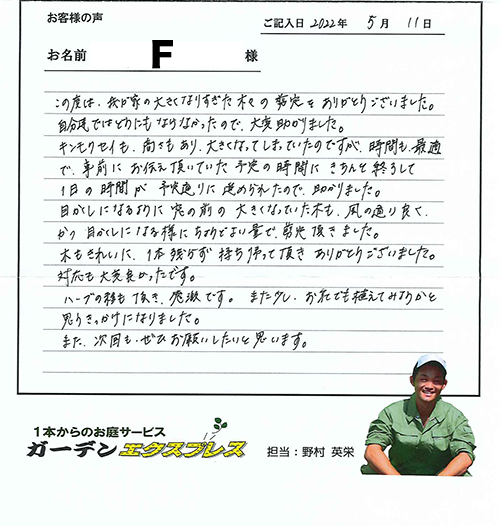 お客様の声
ご記入日 2022年 5月 11日
お名前 F 様
この度は、我が家の大きくなりすぎた木々の剪定をありがとうございました。
自分達ではどうにもならなかったので、大変助かりました。
キンモクセイも、高さもあり、大きくなってしまっていたのですが、時間も、最適
で、事前にお伝え頂いていた予定の時間にきちんと終えて
1日の時間が予定通りに進められたので、助かりました。
目かくしになるように窓の前の大きくなっていた木も、風の通り良く、
かつ目かくしになる様にちょうどよい量で、剪定頂きました。
木もきれいに、1本残らず持ち帰って頂きありがとうございました。
対応も大変良かったです。
ハーブの種も頂き、感激です。また少し、お花でも植えてみようかと
思うきっかけになりました。
また、次回も、ぜひお願いしたいと思います。
1本からのお庭サービス
ガーデンエクスプレス
担当：野村 英栄